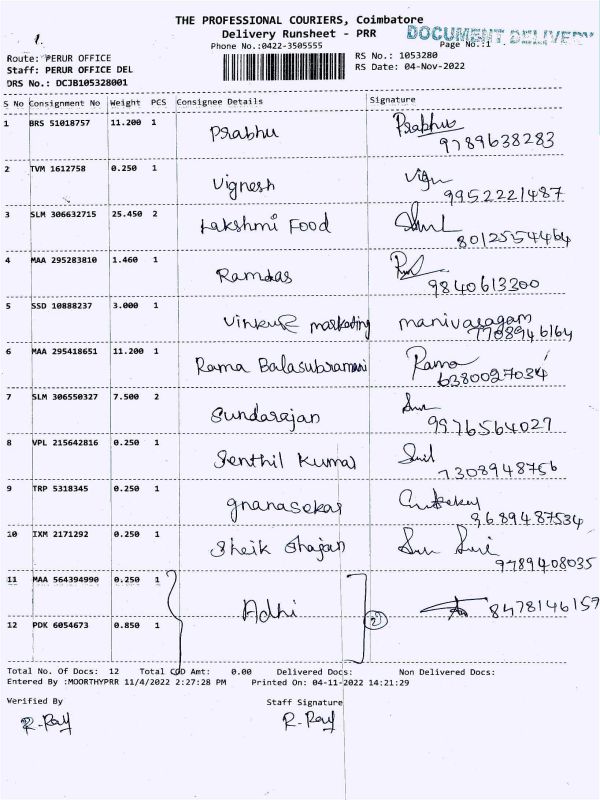 THE PROFESSIONAL COURIERS, Coimbatore
Delivery Runsheet - PRR
DOCUMENT DELIVERY
1.
Phone No.:0422-3505555
Page No.:1
Route: PERUR OFFICE
RS No.: 1053280
Staff: PERUR OFFICE DEL
RS Date: 04-Nov-2022
DRS No.: DCJB105328001
S No Consignment No Weight PCS Consignee Details Signature
1 BRS 51018757 11.200 1 Prabhu Prabhu
9789638283
2 TVM 1612758 0.250 1 Vignesh
9952221487
3 SLM 306632715 25.450 2 Lakshmi Food
8012554464
4 MAA 295283810 1.460 1 Ramdas
9840613200
5 SSD 10888237 3.000 1 marketing manivasagam
7708946164
6 MAA 295418651 11.200 1 Rama Balasubramani Rama
6380027034
7 SLM 306550327 7.500 2 Sundarajan
9976564027
8 VPL 215642816 0.250 1 Senthil Kumar
7308948756
9 TRP 5318345 0.250 1 gnanasekar
8689487534
10 IXM 2171292 0.250 1 Sheik Shajan
9789408035
11 MAA 564394990 0.250 1 Adhi 8478146159
12 PDK 6054673 0.850 1 2
Total No. Of Docs: 12 Total COD Amt: 0.00 Delivered Docs: Non Delivered Docs:
Entered By :MOORTHYPRR 11/4/2022 2:27:28 PM Printed On: 04-11-2022 14:21:29
Verified By Staff Signature
R-Ray R-Ray